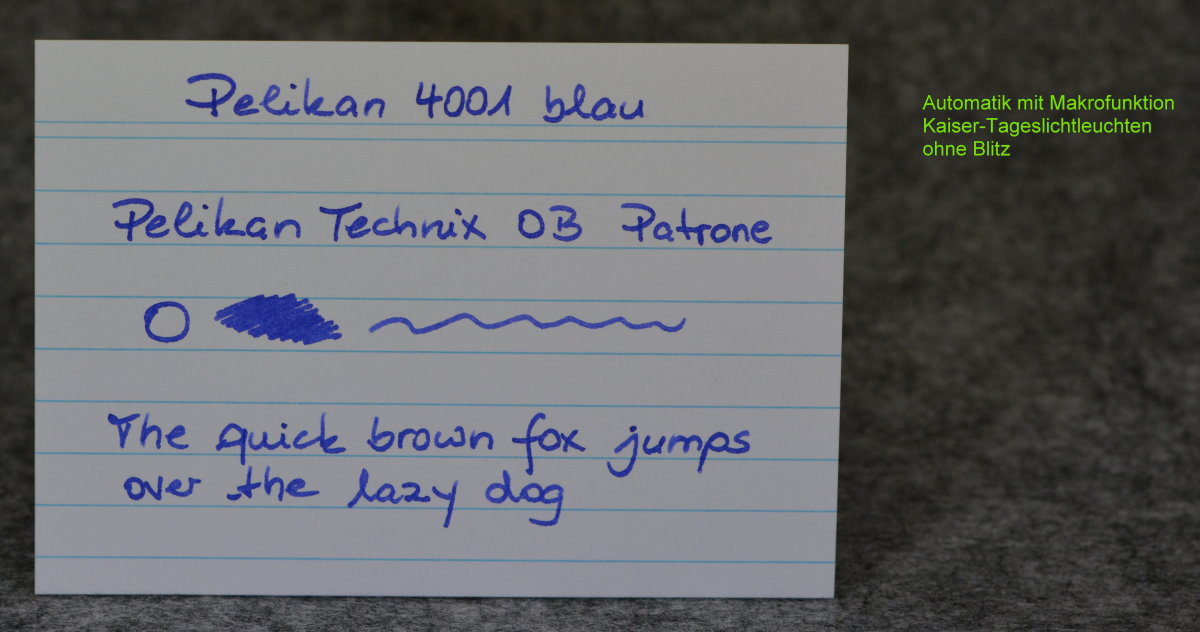 Pelikan 4001 blau
Pelikan Technix OB Patrone
The quick brown fox jumps
over the lazy dog
Automatik mit Makrofunktion
Kaiser-Tageslichtleuchten
ohne Blitz